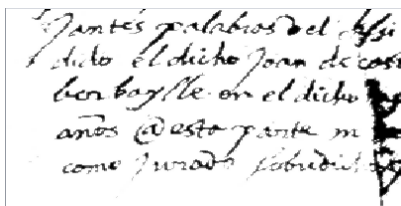 jantes palabras del
dido el dicho Joan de
ber baylle en el dicho
años @ esta parte
como Jurado